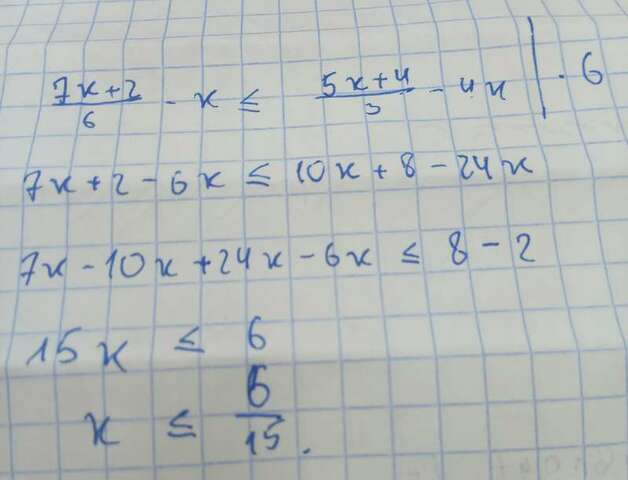 (7x+2)/6 - x ≤ (5x+4)/3 - 4x | · 6
7x+2-6x ≤ 10x+8-24x
7x-10x+24x-6x ≤ 8-2
15x ≤ 6
x ≤ 6/15.